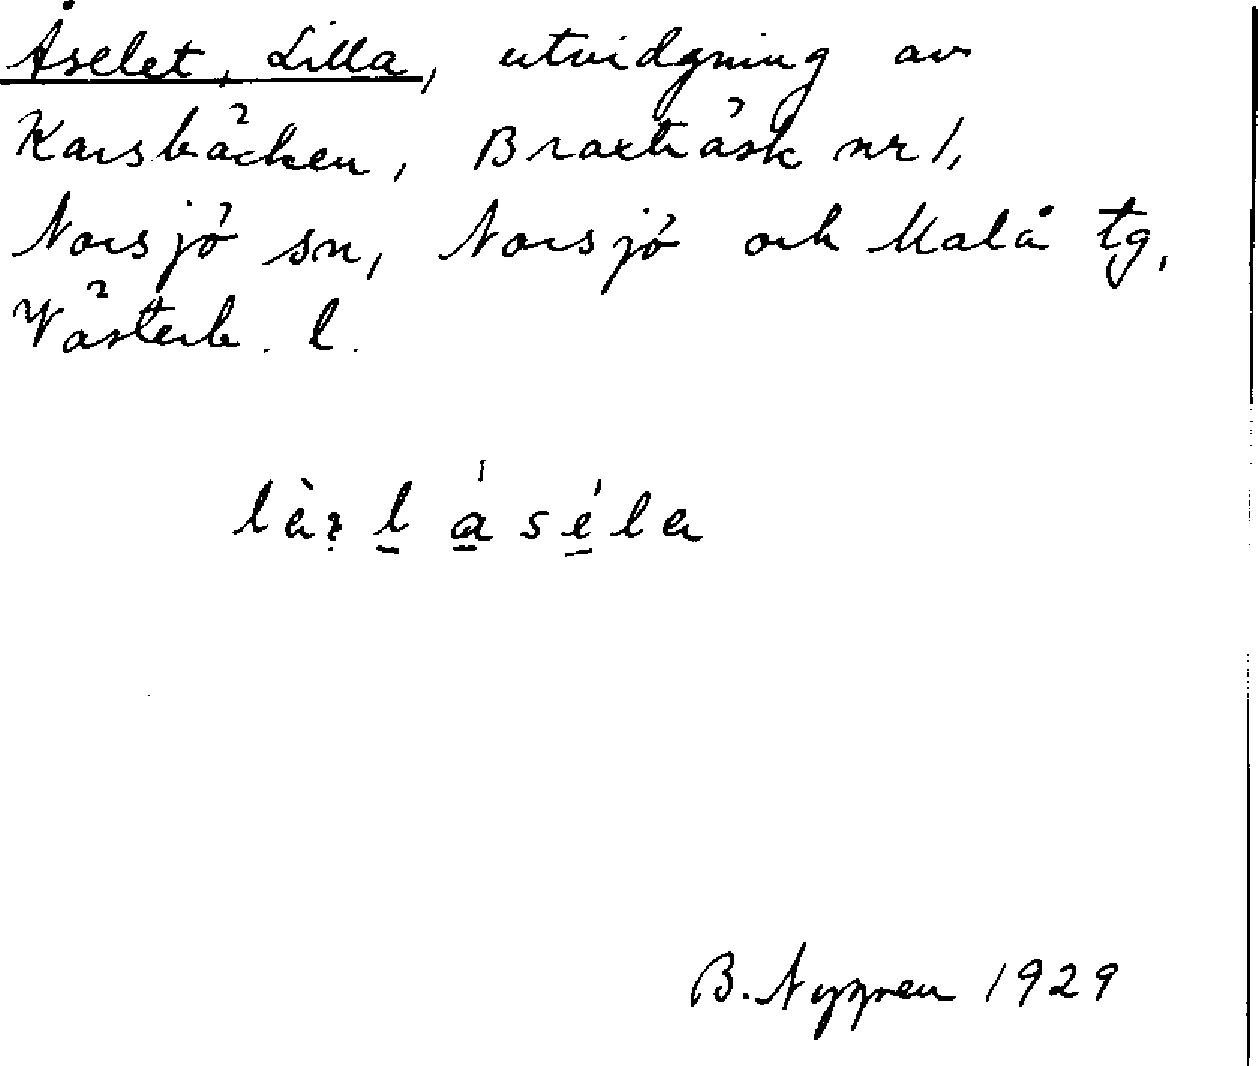 Åselet, Lilla, utvidgning av
Karsbäcken, Braxträsk nr 1,
Norsjö sn, Norsjö och Malå tg,
Västerb. l.
B. Nygren 1929